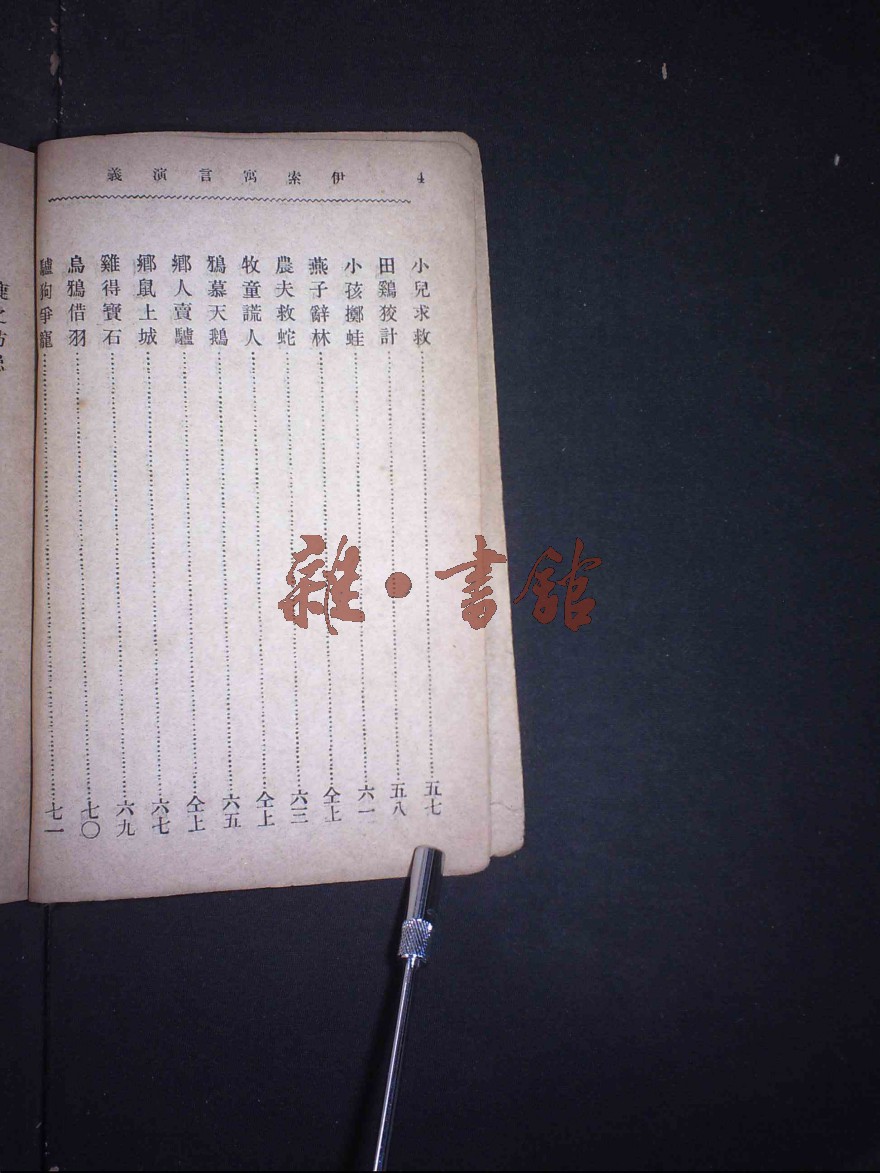 4 伊索寓言演義
小兒求救⋯⋯五七
田鷄狡計⋯⋯五八
小孩擲蛙⋯⋯六一
燕子辭林⋯⋯仝上
農夫救蛇⋯⋯六三
牧童謊人⋯⋯仝上
鴉慕天鵝⋯⋯六五
鄉人賣驢⋯⋯仝上
鄉鼠上城⋯⋯六七
雞得寶石⋯⋯六九
烏鴉借羽⋯⋯七〇
驢狗爭寵⋯⋯七一
雜·書館